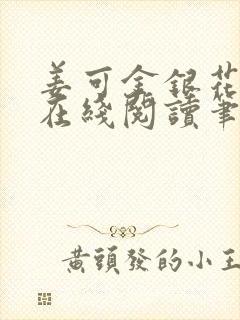 姜可金銀花
在綫閱讀筆
黃頭發的小王